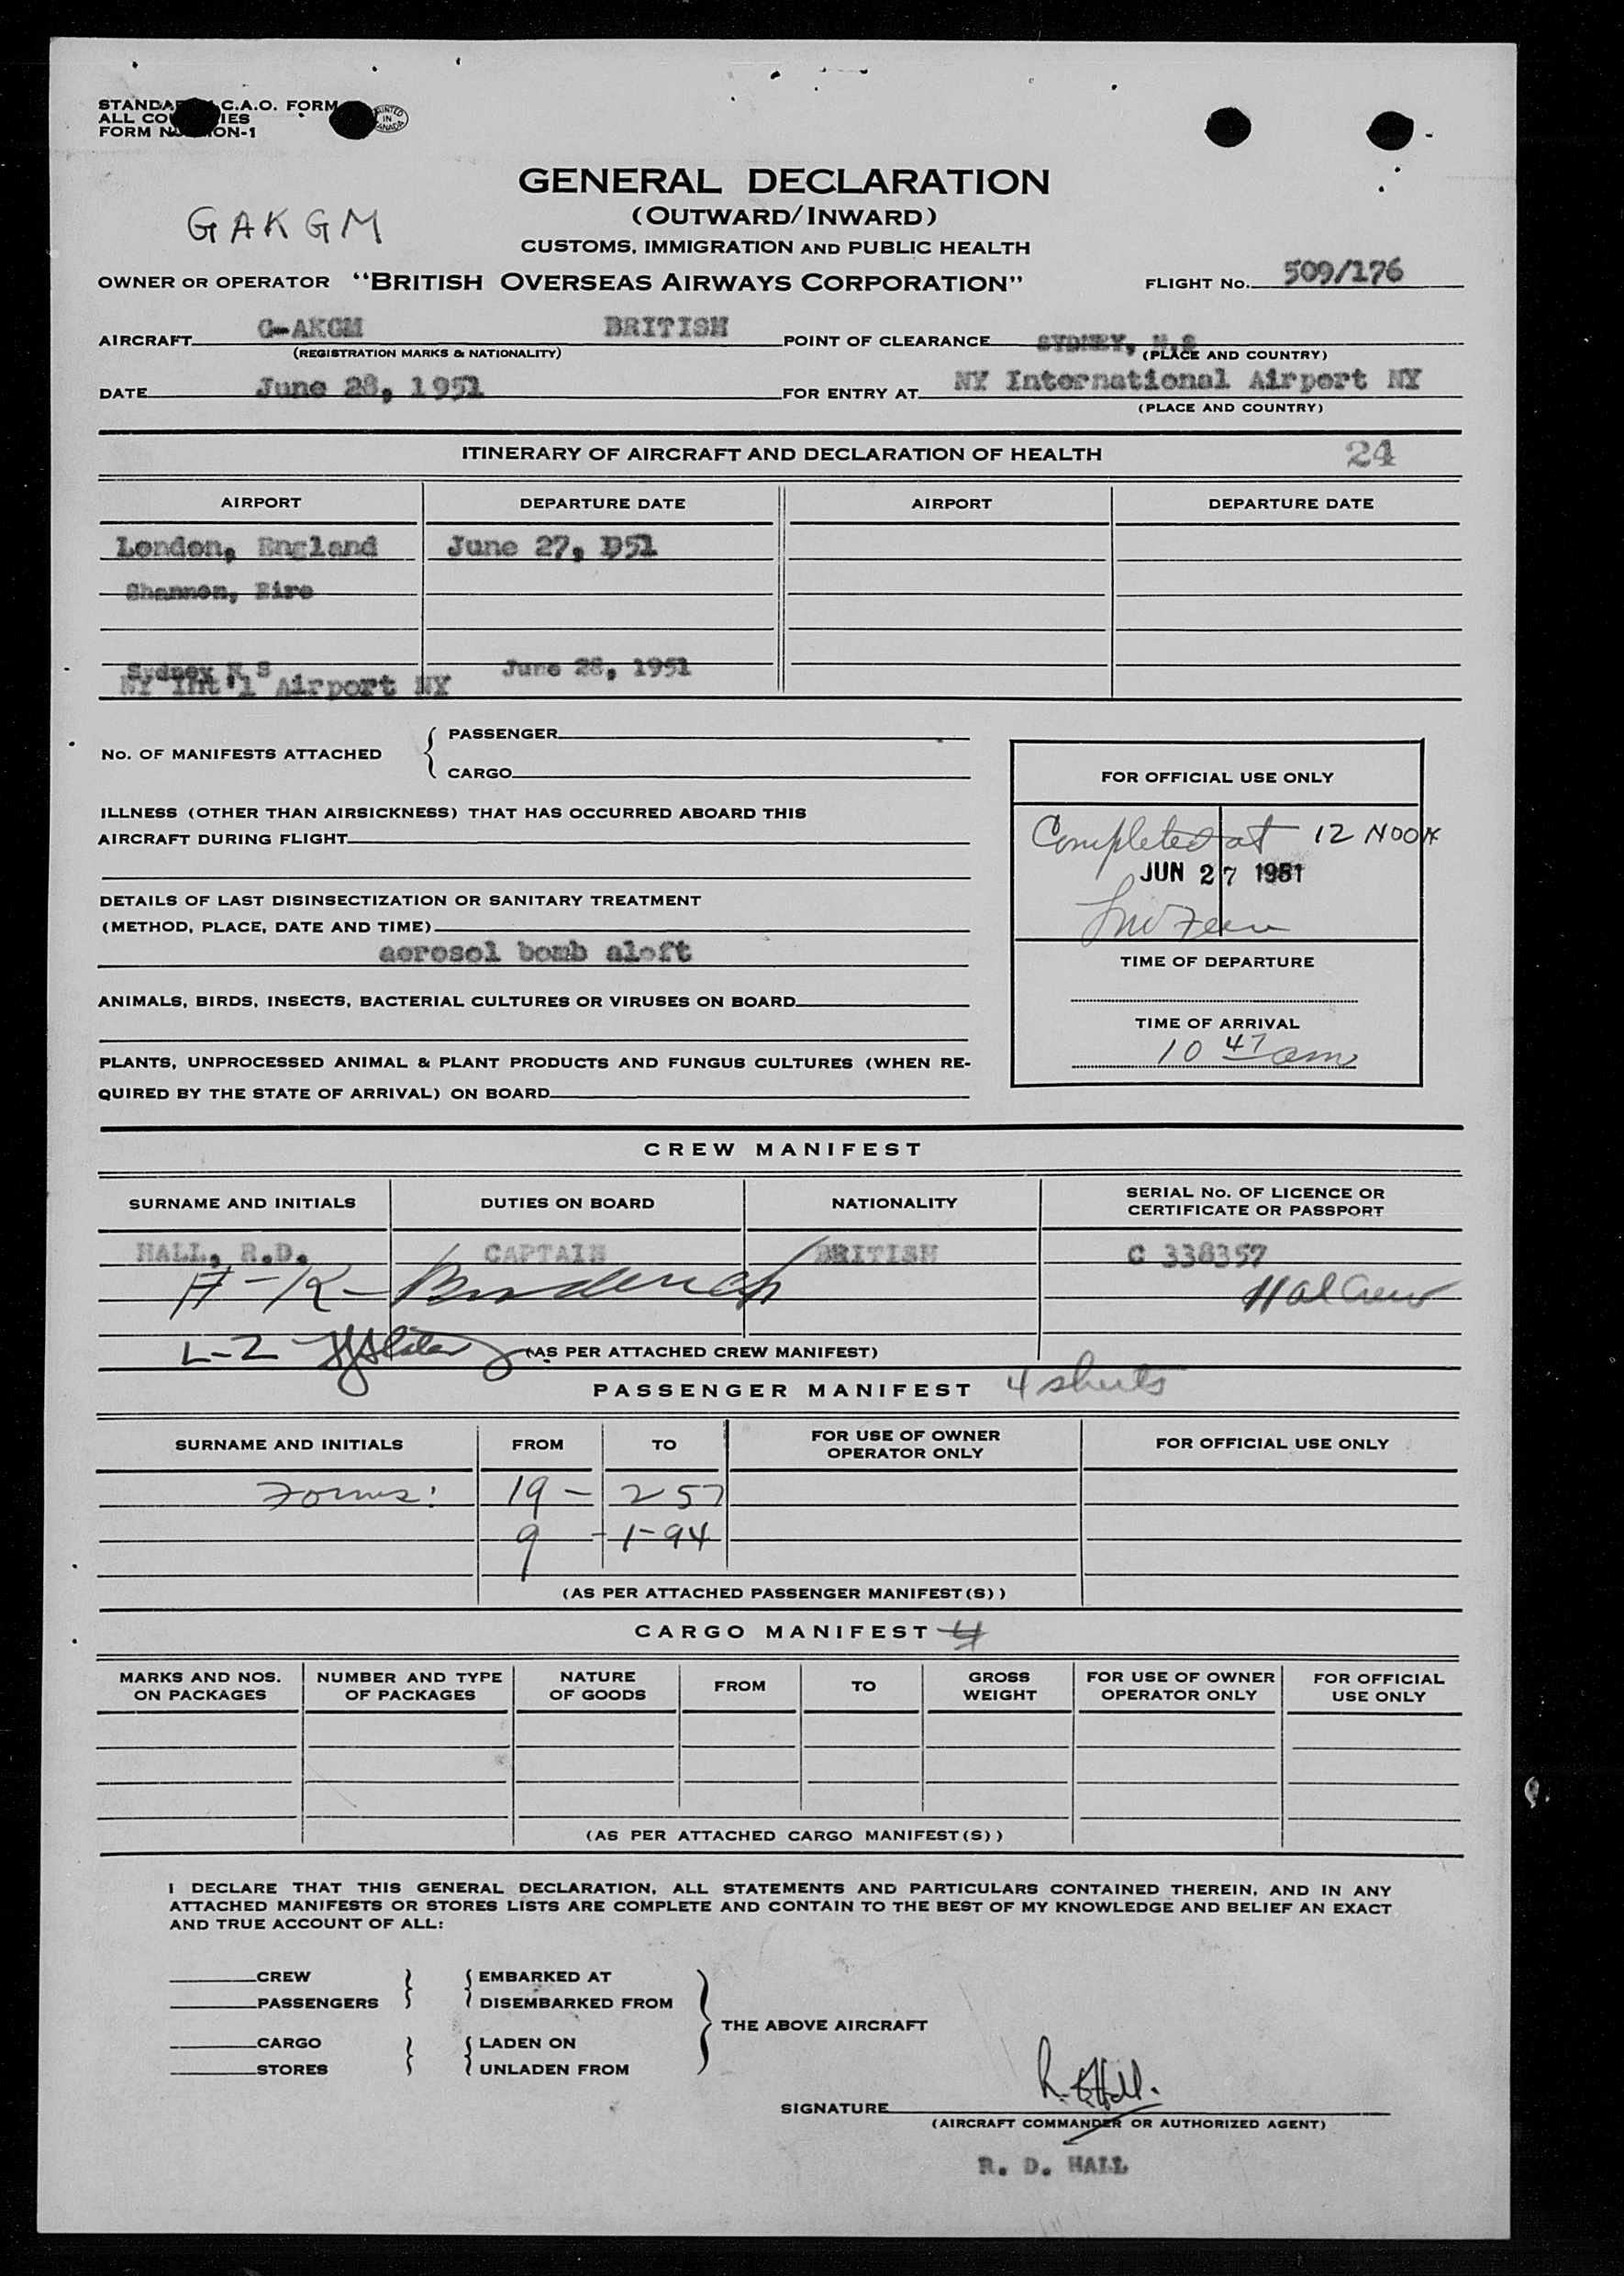 STANDA C.A.O. FORM
ALL CO IES
FORM N ON-1
PRINTED IN CANADA
GENERAL DECLARATION
(OUTWARD/INWARD)
GAKGM
CUSTOMS, IMMIGRATION AND PUBLIC HEALTH
OWNER OR OPERATOR "BRITISH OVERSEAS AIRWAYS CORPORATION" FLIGHT No. 509/176
AIRCRAFT G-AKGM BRITISH POINT OF CLEARANCE SYDNEY, N.S
(REGISTRATION MARKS & NATIONALITY) (PLACE AND COUNTRY)
DATE June 28, 1951 FOR ENTRY AT NY International Airport NY
(PLACE AND COUNTRY)
ITINERARY OF AIRCRAFT AND DECLARATION OF HEALTH 24
AIRPORT DEPARTURE DATE AIRPORT DEPARTURE DATE
London, England June 27, 1951
Shannon, Eire
Sydney N S June 28, 1951
NY Int'l Airport NY
No. OF MANIFESTS ATTACHED { PASSENGER
CARGO
FOR OFFICIAL USE ONLY
ILLNESS (OTHER THAN AIRSICKNESS) THAT HAS OCCURRED ABOARD THIS
AIRCRAFT DURING FLIGHT
Completed at 12 NOON
JUN 27 1951
DETAILS OF LAST DISINSECTIZATION OR SANITARY TREATMENT
(METHOD, PLACE, DATE AND TIME)
aerosol bomb aloft
TIME OF DEPARTURE
ANIMALS, BIRDS, INSECTS, BACTERIAL CULTURES OR VIRUSES ON BOARD
TIME OF ARRIVAL
10 47 am
PLANTS, UNPROCESSED ANIMAL & PLANT PRODUCTS AND FUNGUS CULTURES (WHEN RE-
QUIRED BY THE STATE OF ARRIVAL) ON BOARD
CREW MANIFEST
SURNAME AND INITIALS DUTIES ON BOARD NATIONALITY SERIAL No. OF LICENCE OR
CERTIFICATE OR PASSPORT
HALL, R.D. CAPTAIN BRITISH C 338357
A-K-
L-2 (AS PER ATTACHED CREW MANIFEST)
PASSENGER MANIFEST 4 sheets
SURNAME AND INITIALS FROM TO FOR USE OF OWNER
OPERATOR ONLY FOR OFFICIAL USE ONLY
Forms: 19 - 257
9 - 1-94
(AS PER ATTACHED PASSENGER MANIFEST(S))
CARGO MANIFEST 4
MARKS AND NOS.
ON PACKAGES NUMBER AND TYPE
OF PACKAGES NATURE
OF GOODS FROM TO GROSS
WEIGHT FOR USE OF OWNER
OPERATOR ONLY FOR OFFICIAL
USE ONLY
(AS PER ATTACHED CARGO MANIFEST(S))
I DECLARE THAT THIS GENERAL DECLARATION, ALL STATEMENTS AND PARTICULARS CONTAINED THEREIN, AND IN ANY
ATTACHED MANIFESTS OR STORES LISTS ARE COMPLETE AND CONTAIN TO THE BEST OF MY KNOWLEDGE AND BELIEF AN EXACT
AND TRUE ACCOUNT OF ALL:
CREW } { EMBARKED AT
PASSENGERS DISEMBARKED FROM
THE ABOVE AIRCRAFT
CARGO } { LADEN ON
STORES UNLADEN FROM
SIGNATURE R. D. Hall.
(AIRCRAFT COMMANDER OR AUTHORIZED AGENT)
R. D. HALL